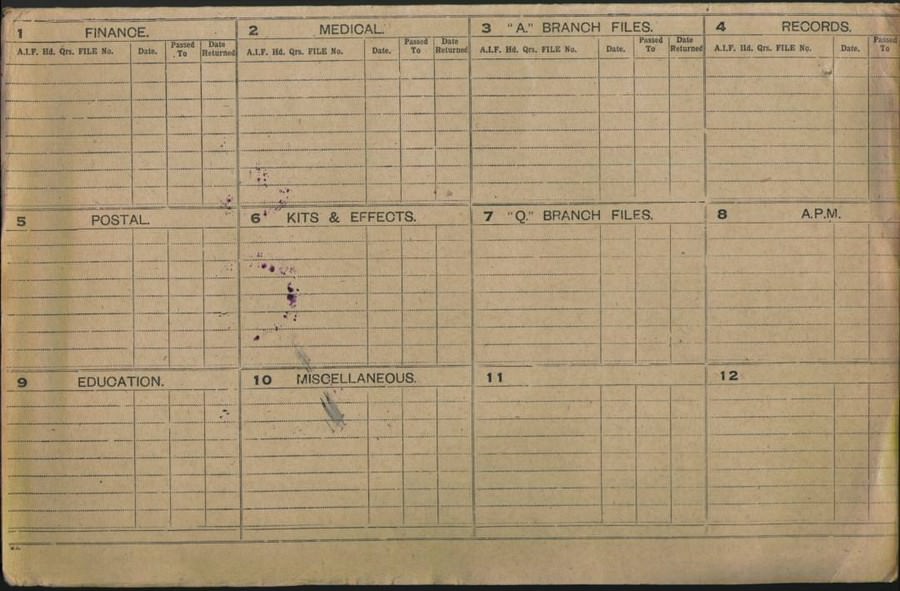 1 FINANCE. 2 MEDICAL. 3 "A." BRANCH FILES. 4 RECORDS.
A.I.F. Hd. Qrs. FILE No. Date. Passed To Date Returned A.I.F. Hd. Qrs. FILE No. Date. Passed To Date Returned A.I.F. Hd. Qrs. FILE No. Date. Passed To Date Returned A.I.F. Hd. Qrs. FILE No. Date. Passed To
5 POSTAL. 6 KITS & EFFECTS. 7 "Q." BRANCH FILES. 8 A.P.M.
9 EDUCATION. 10 MISCELLANEOUS. 11 12